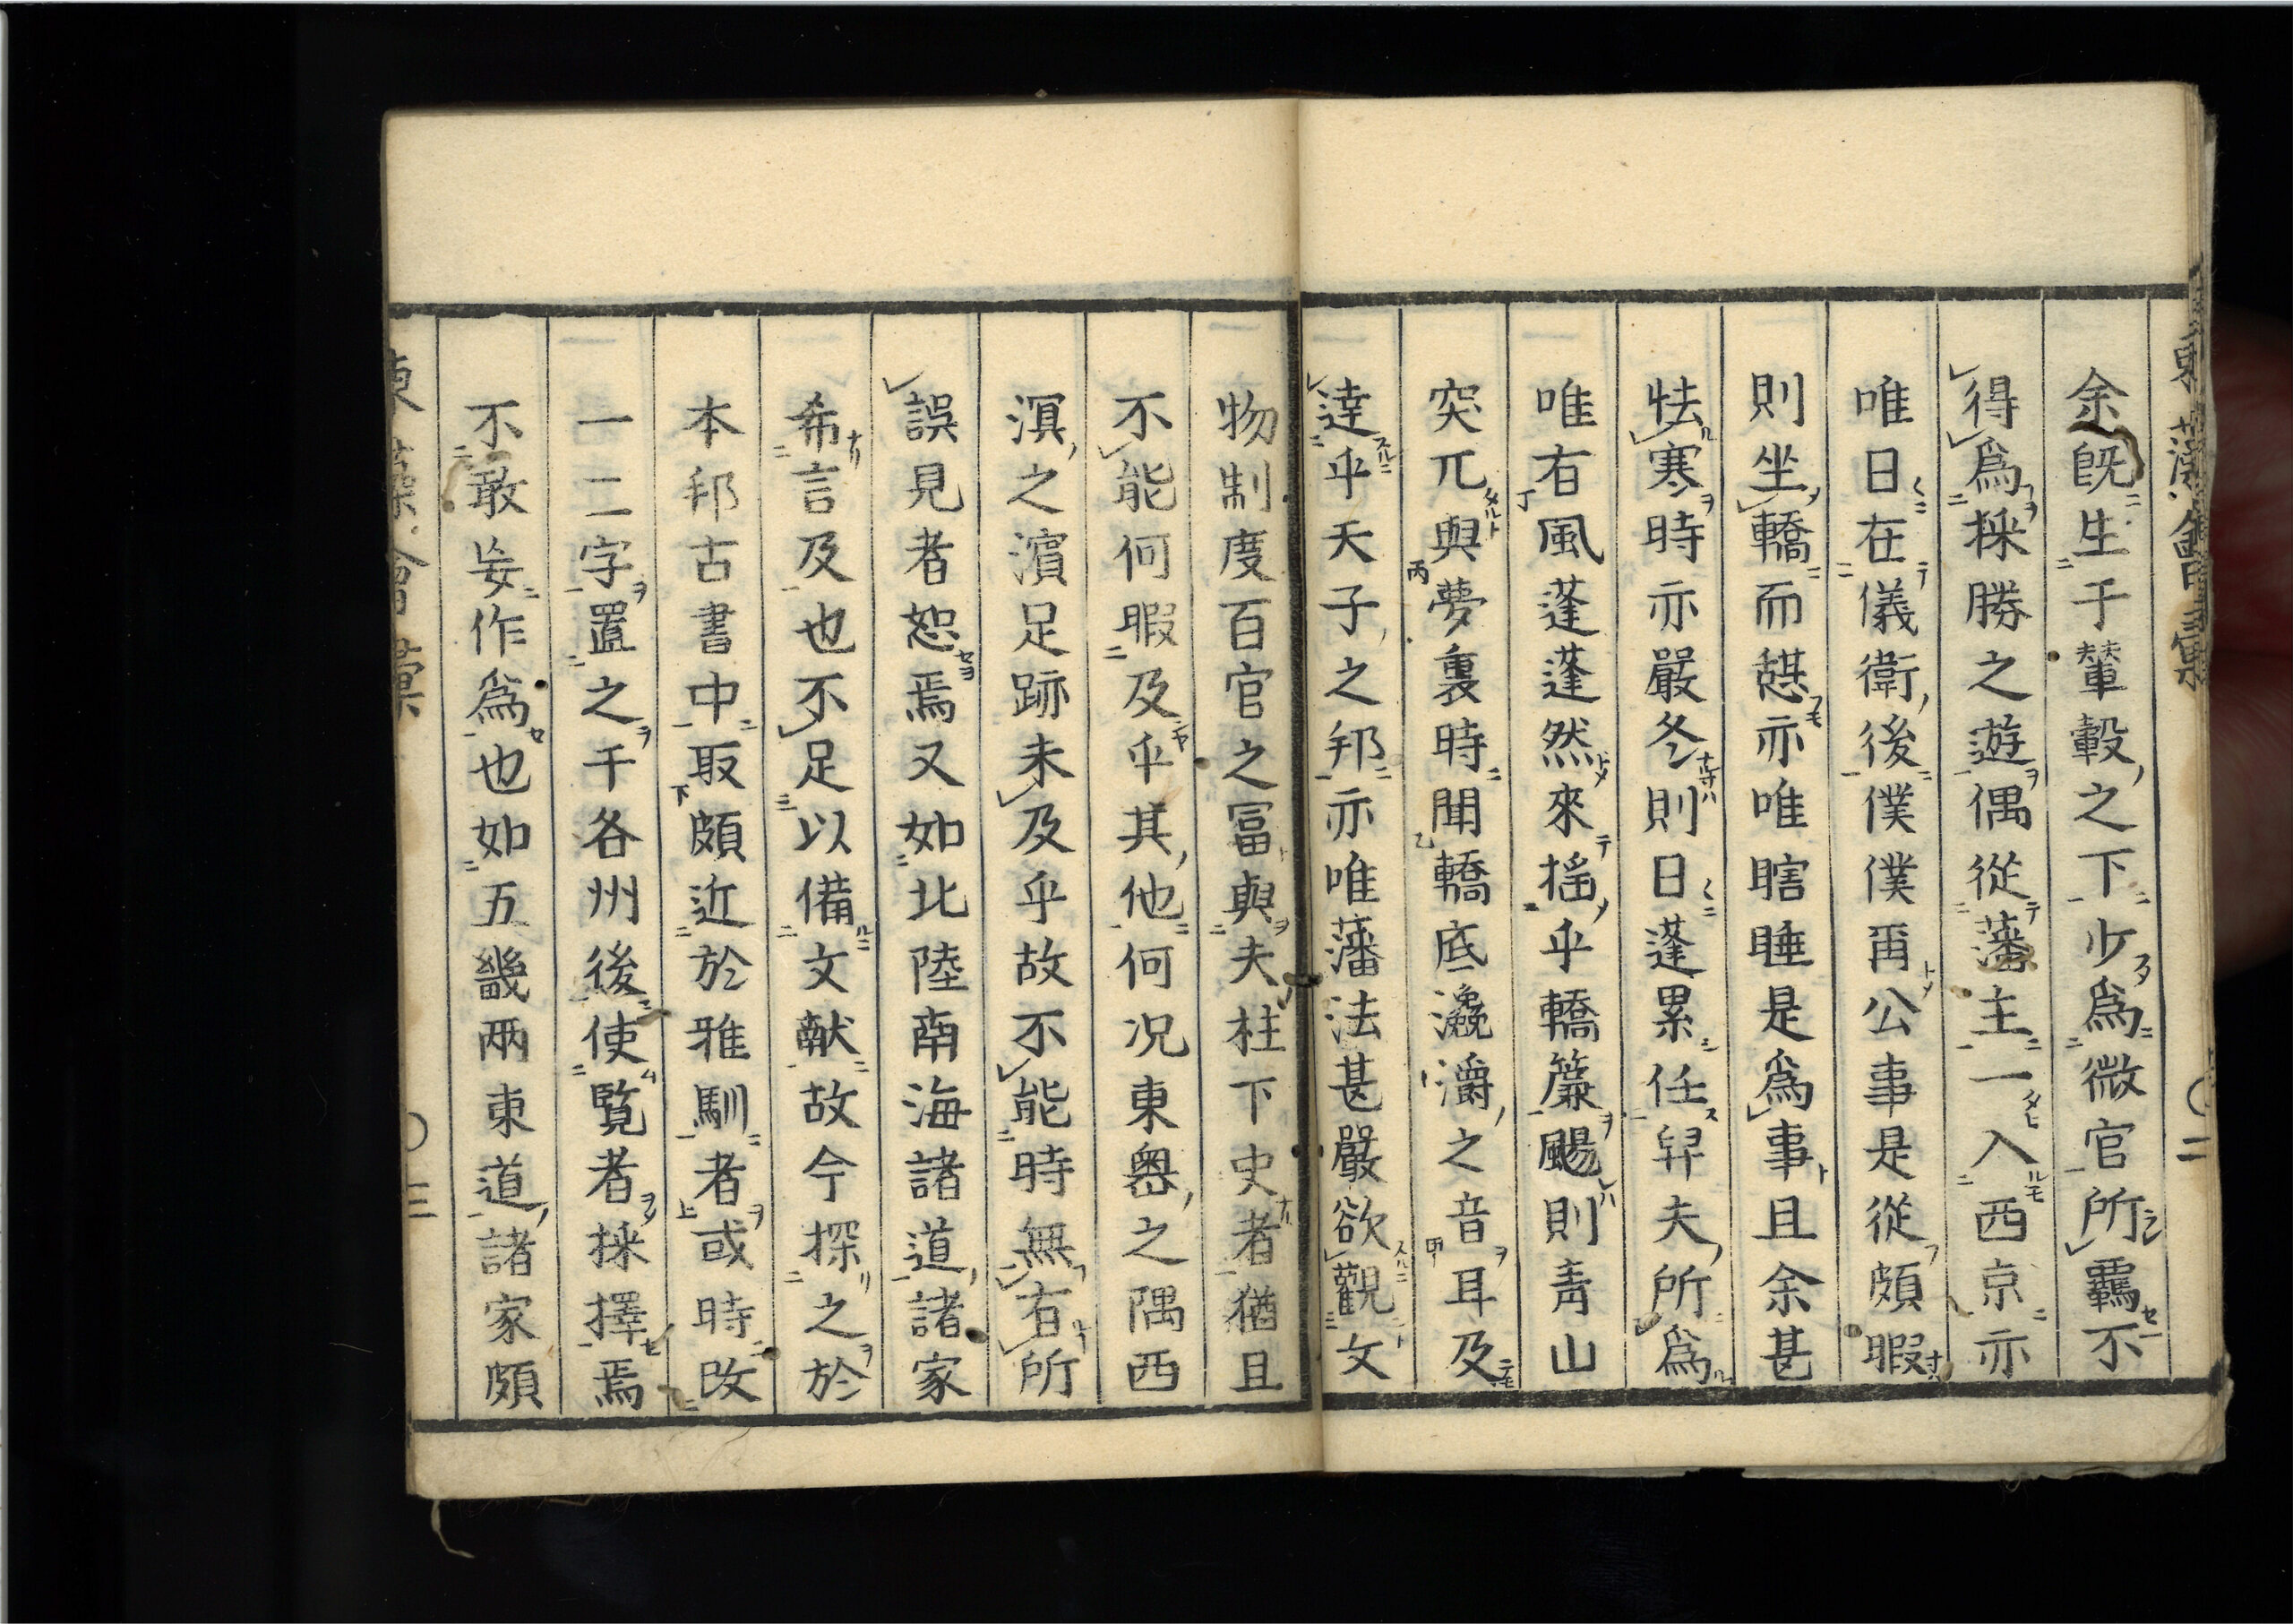 余既生于輦轂之下少爲微官所羈不
得爲採勝之遊偶從藩主一入西京亦
唯日在儀衛後僕僕再公事是從頗暇
則坐轎而憇亦唯瞎睡是爲事且余甚
怯寒時亦嚴冬則日蓬累任舁夫所爲
唯有風蓬蓬然來摇乎轎簾颺則青山
突兀與夢裏時聞轎底瀺灂之音耳及
達乎天子之邦亦唯藩法甚嚴欲觀文
物制度百官之冨與夫柱下史者猶且
不能何暇及乎其他何况東奥之隅西
溟之濱足跡未及乎故不能時無有所
誤見者恕焉又如北陸南海諸道諸家
希言及也不足以備文献故今探之於
本邦古書中取頗近於雅馴者或時改
一二字置之于各州後使覧者採擇焉
不敢妄作爲也如五畿兩東道諸家頗